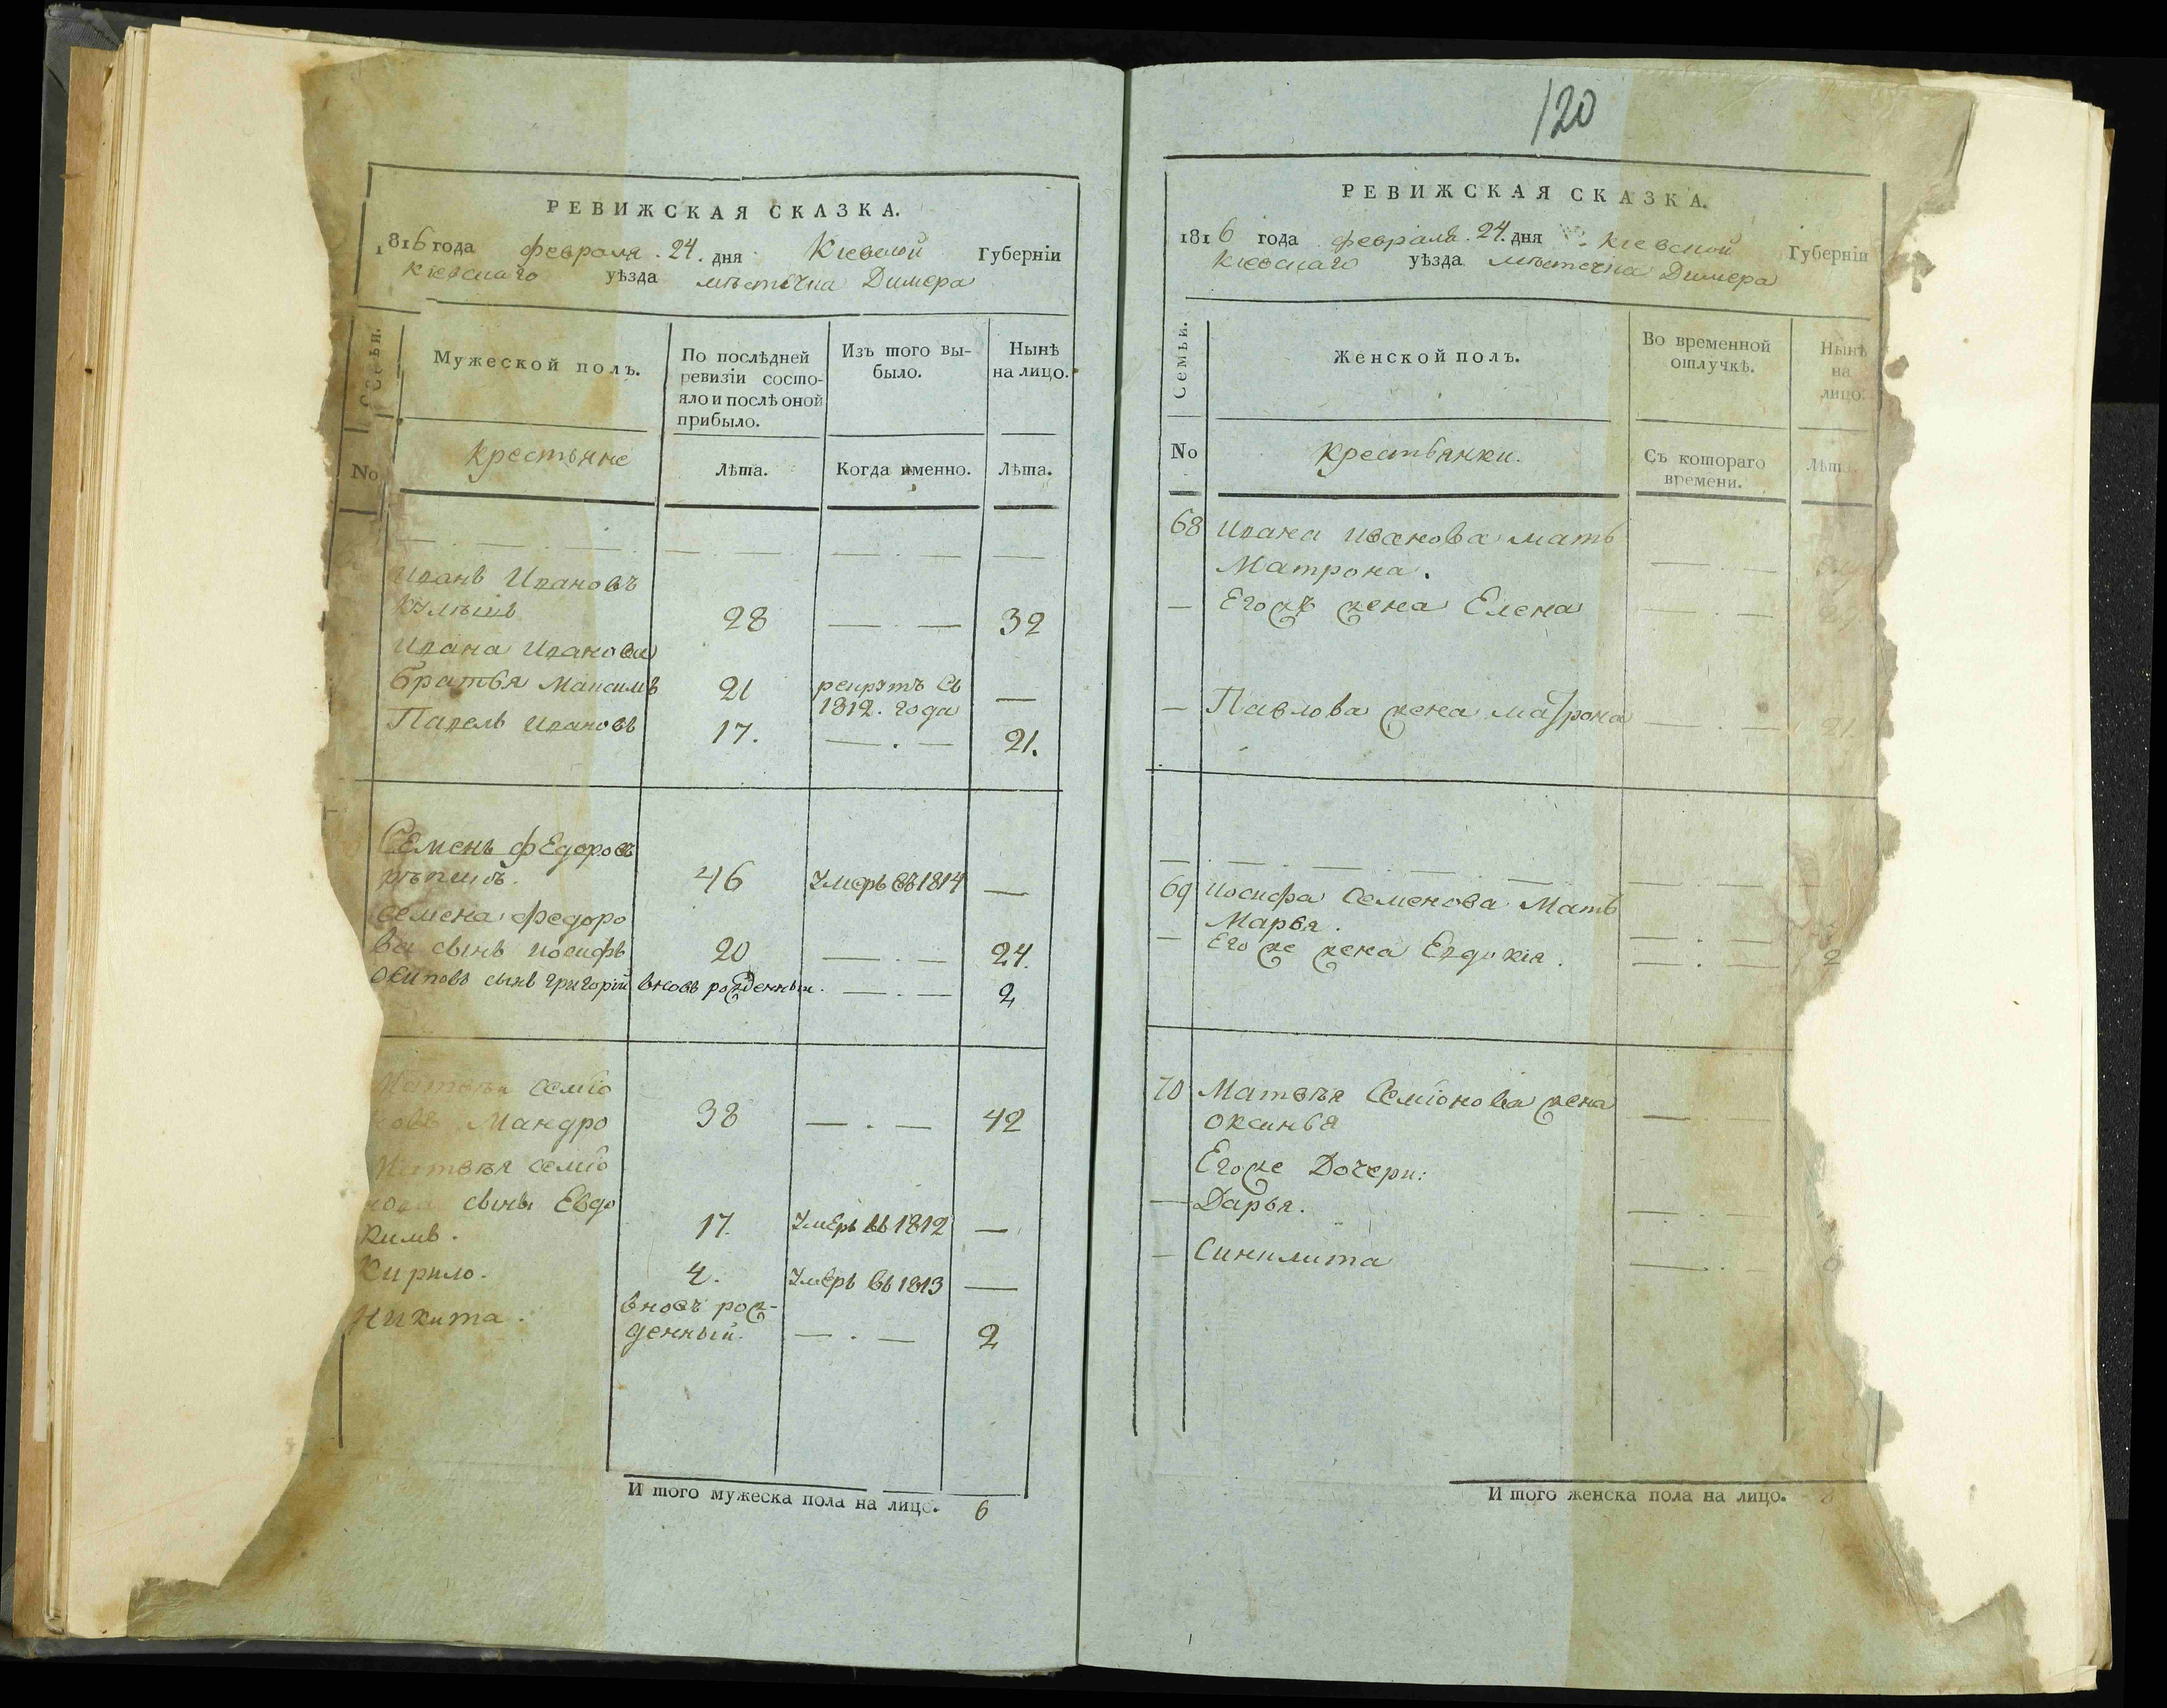 120
РЕВИЖСКАЯ СКАЗКА.
1816 года февраля. 24. дня Кіевской Губерніи
Кіевскаго уѣзда мѣстечка Димера
Семьи.
Мужеской полъ.
По послѣдней ревизіи состо-
яло и послѣ оной прибыло.
Изъ того вы-
было.
Нынѣ
на лицо.
No
крестьяне
Лѣта.
Когда именно.
Лѣта.
Иванъ Ивановъ
28 32
Ивана Иванова
братья Максимъ 21 рекрутъ въ
1812. года
Павелъ Ивановъ 17. 21.
Семенъ Федоровъ
46 Умеръ въ 1814
Семена Федоро
ва сынъ Иосифъ 20 24.
Осиповъ сынъ Григорій вновь рожденный. 2
Матвѣй Семіо
новъ Мандро 38 42
Матвѣя Семіо
нова сыны Евдо
кимъ. 17. Умеръ въ 1812
Кирило. 4. Умеръ въ 1813
Никита. вновь рож-
денный. 2
И того мужеска пола на лицо. 6
РЕВИЖСКАЯ СКАЗКА.
1816 года февраля. 24. дня Кіевской Губерніи
Кіевскаго уѣзда мѣстечка Димера
Семьи.
Женской полъ.
Во временной
отлучкѣ.
Нынѣ
на
лицо.
No
Крестьянки.
Съ котораго
времени.
Лѣта
68 Ивана Иванова мать
Матрона.
Его жъ жена Елена
Павлова жена Матрона 21.
69 Иосифа Семенова Мать
Марья.
Его же жена Евдокія.
70 Матвѣя Семіонова жена
Оксинья
Его же Дочери:
Дарья.
Синклита
И того женска пола на лицо.